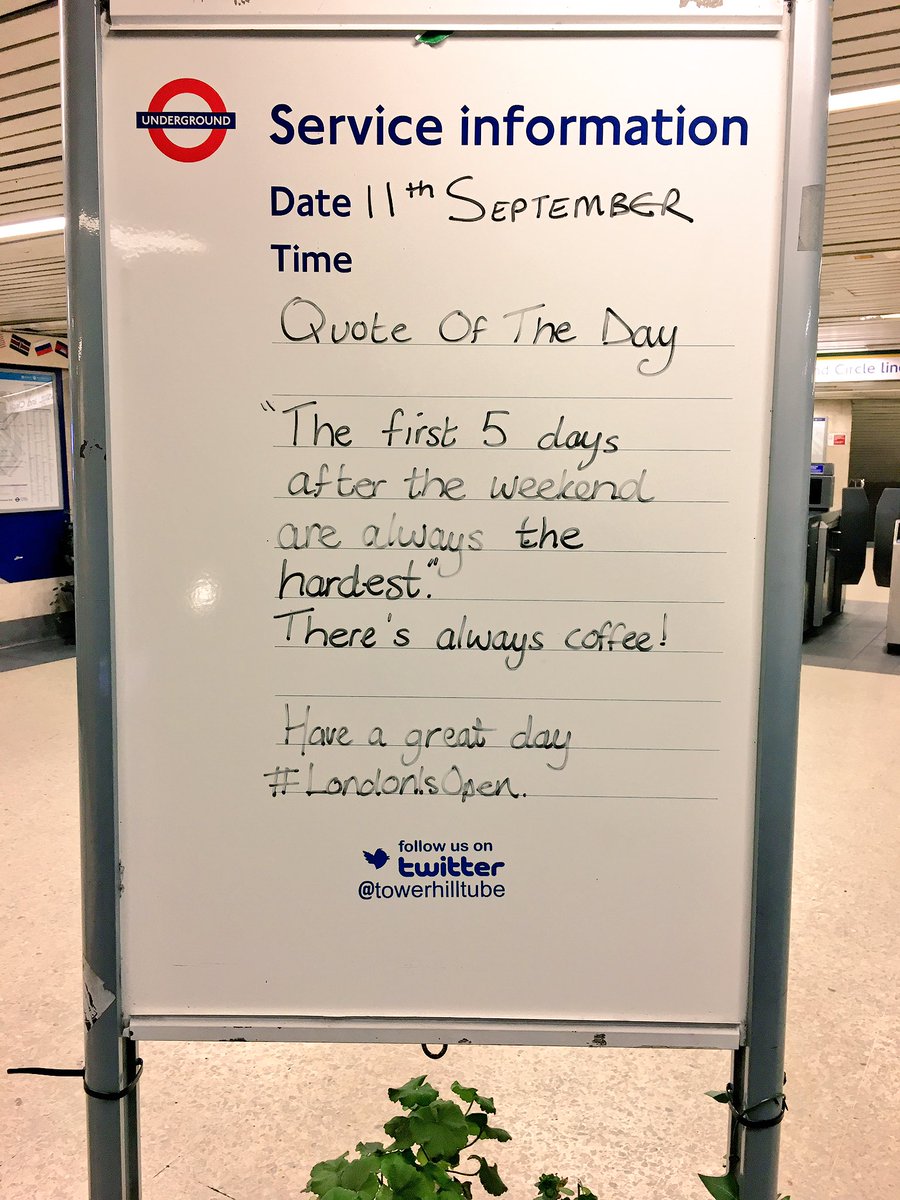 UNDERGROUND
Service information
Date 11th SEPTEMBER
Time
Quote Of The Day
"The first 5 days
after the weekend
are always the
hardest."
There's always coffee!
Have a great day
#LondonIsOpen.
follow us on
twitter
@towerhilltube
nd Circle line